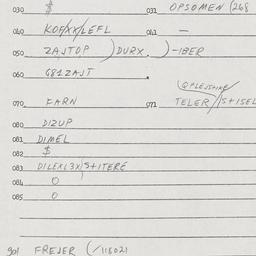 030 $ 031 OPSOMEN (268
040 KOF/XX/LEFL 041 —
050 ZAJTOP )DURX. )-IBER
060 G81ZAJT
070 FARN 071 TELER/S+ISEL
080 DIZUP
081 DIMEL
082 $
083 DILEXL3X/S+ITERE
084 0
085 0
901 FREJER (/118021